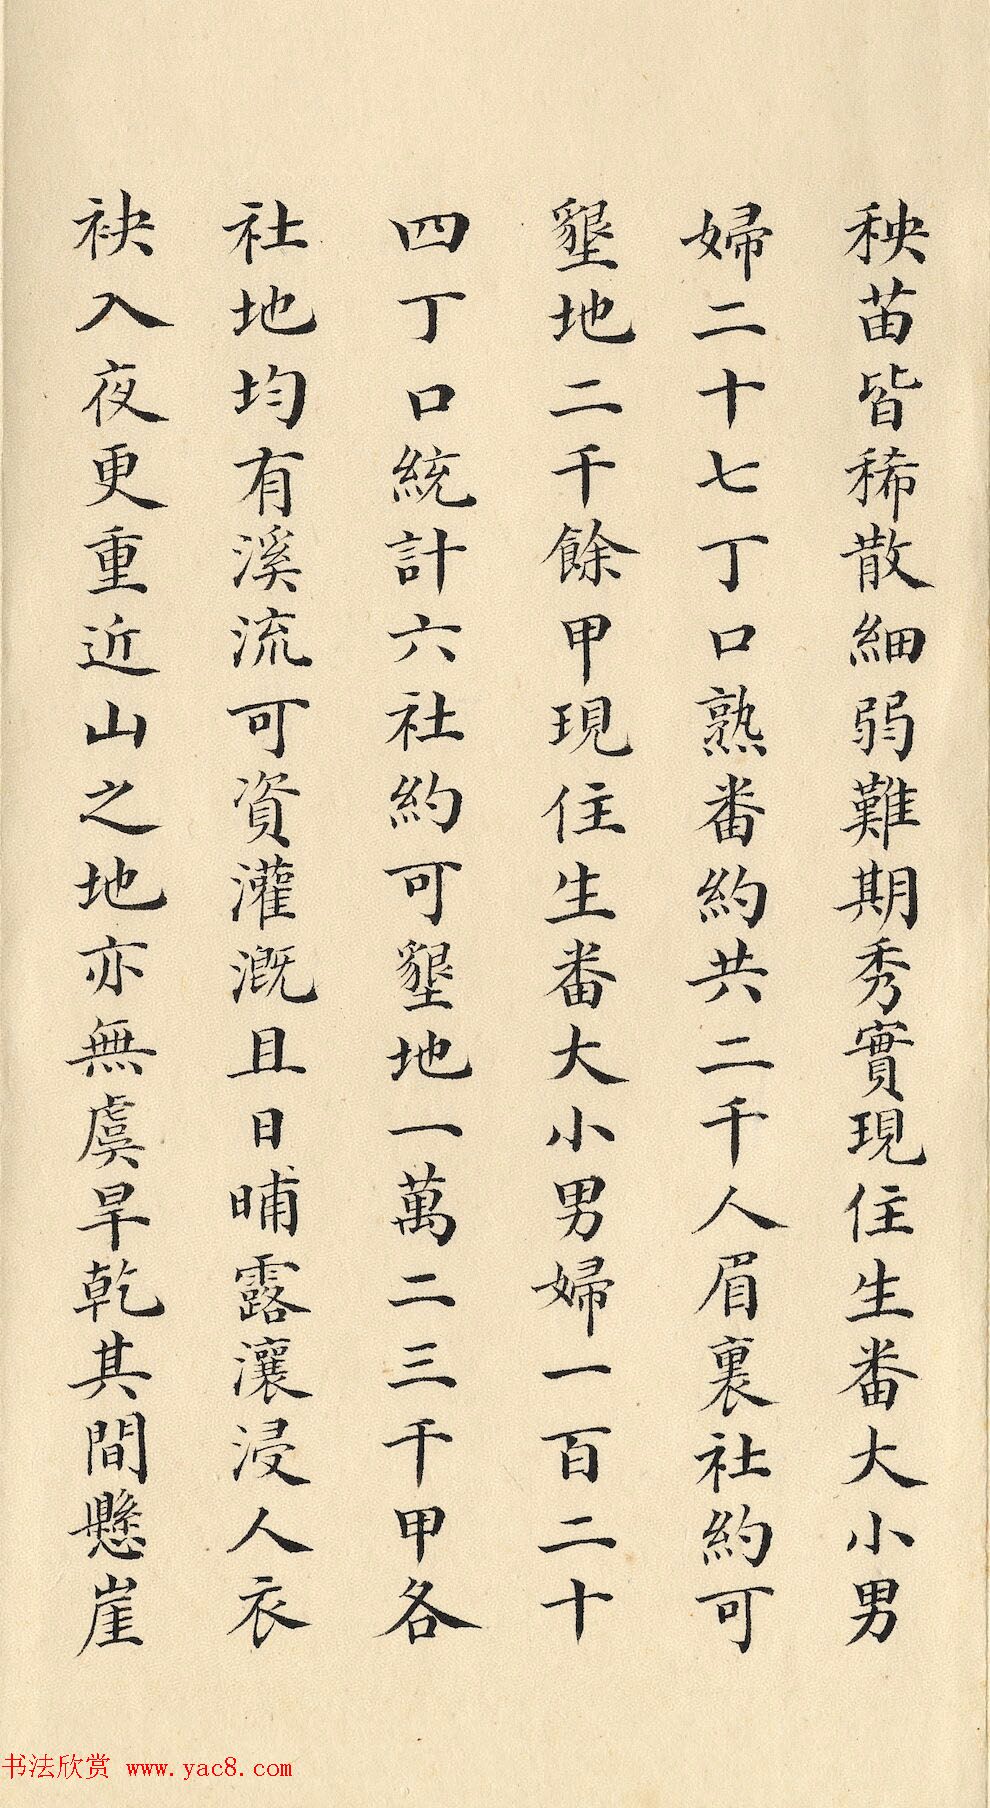 秧苗皆稀散細弱難期秀實現住生番大小男
婦二十七丁口熟番約共二千人眉裏社約可
墾地二千餘甲現住生番大小男婦一百二十
四丁口統計六社約可墾地一萬二三千甲各
社地均有溪流可資灌溉且日晡露瀼浸人衣
袂入夜更重近山之地亦無虞旱乾其間懸崖
书法欣赏 www.yac8.com